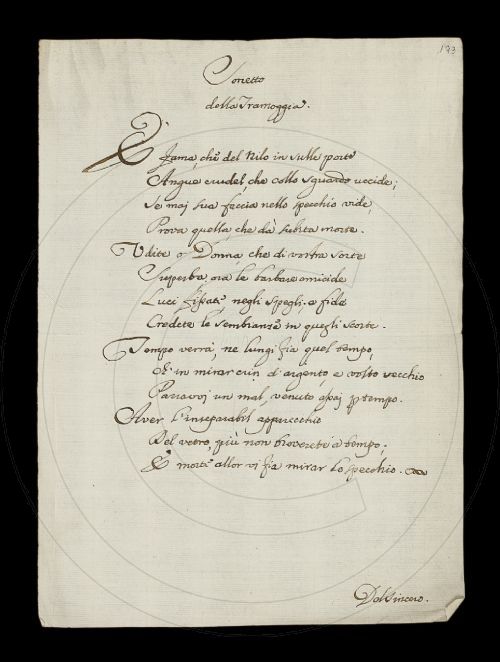 193
Sonetto
della Tramoggia.
È fama, che del Nilo in sulle porte
Angue crudel che collo sguardo uccide;
Se mai sua faccia nello specchio vide,
Prova quella, che dà subita morte.
Udite o Donna che di vostra sorte
Superba, ora le barbare omicide
Luci fissate negli spegli; e fide
Credete le sembianze in quegli scorte.
Tempo verrà, ne lungi fia quel tempo,
Ch' in mirar crin d'argento, e volto vecchio
Parravvi un mal, venuto assai per tempo.
Aver l'inseparabil apparecchio
Del vetro, più non troverete a tempo;
E morte allor vi fia mirar lo specchio.
Del Sincero.